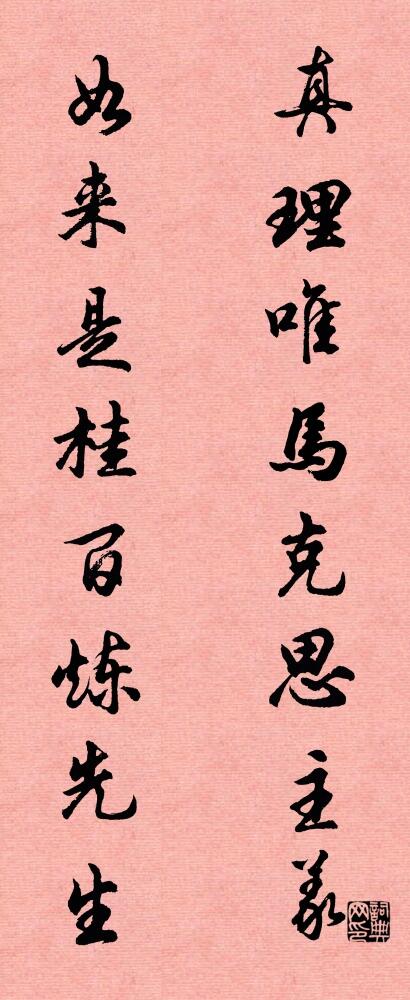 真理唯馬克思主義
如来是桂百炼先生
詞典網印